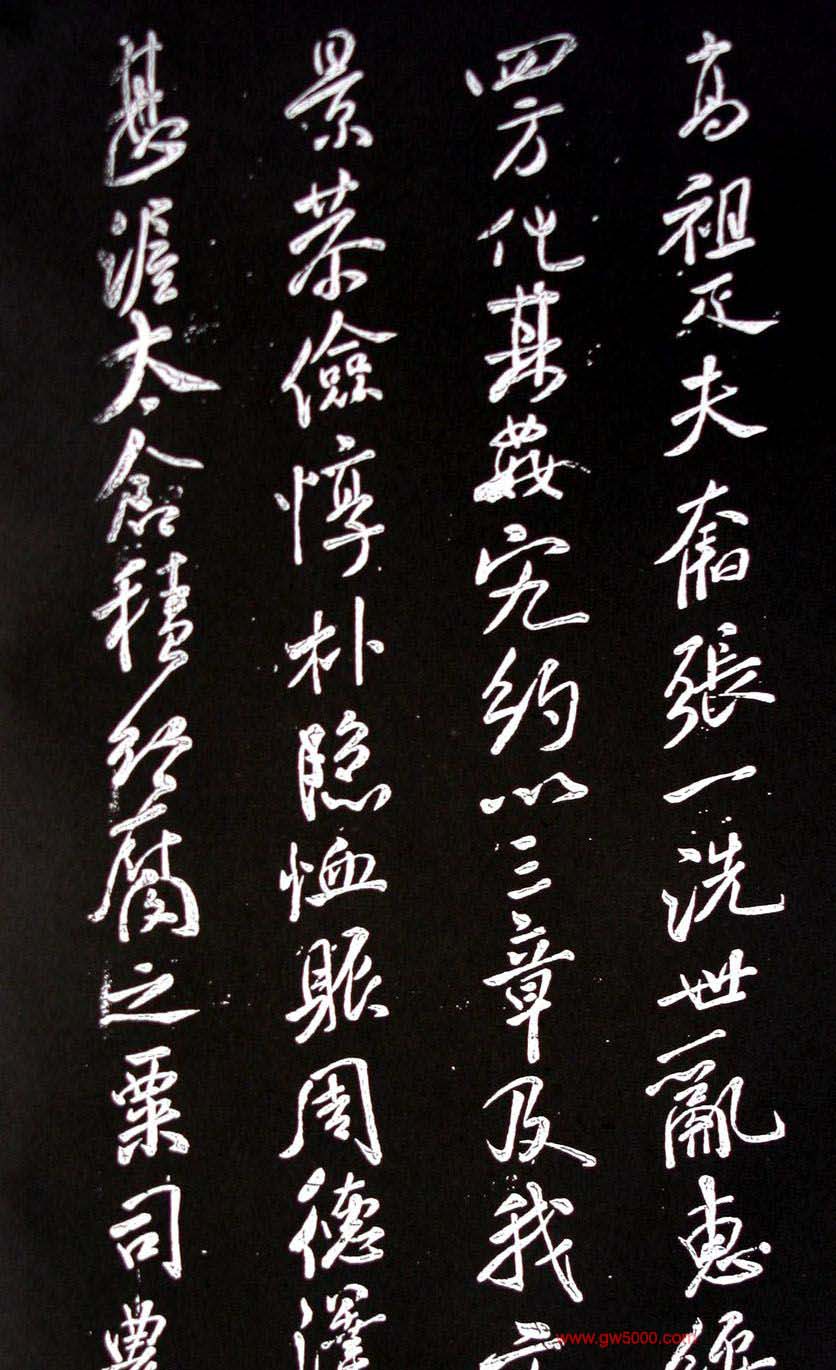 高祖之夫奮張一洗世亂惠綏
四方化其姦宄約以三章及我文
景恭儉惇朴隱恤賑周德澤
甚渥太倉積紅腐之粟司農
www.gw5000.com